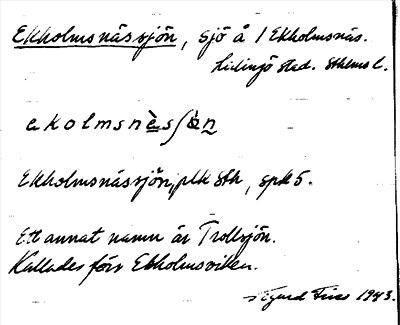 Ekholmsnässjön, sjö å 1 Ekholmsnäs.
Lidingö stad. Sthlms l.
ekolmsnäsʃön
Ekholmsnässjön, plk Sth, spk 5.
Ett annat namn är Trollsjön.
Kallades förr Ekholmsviken.
Sigurd 1943.